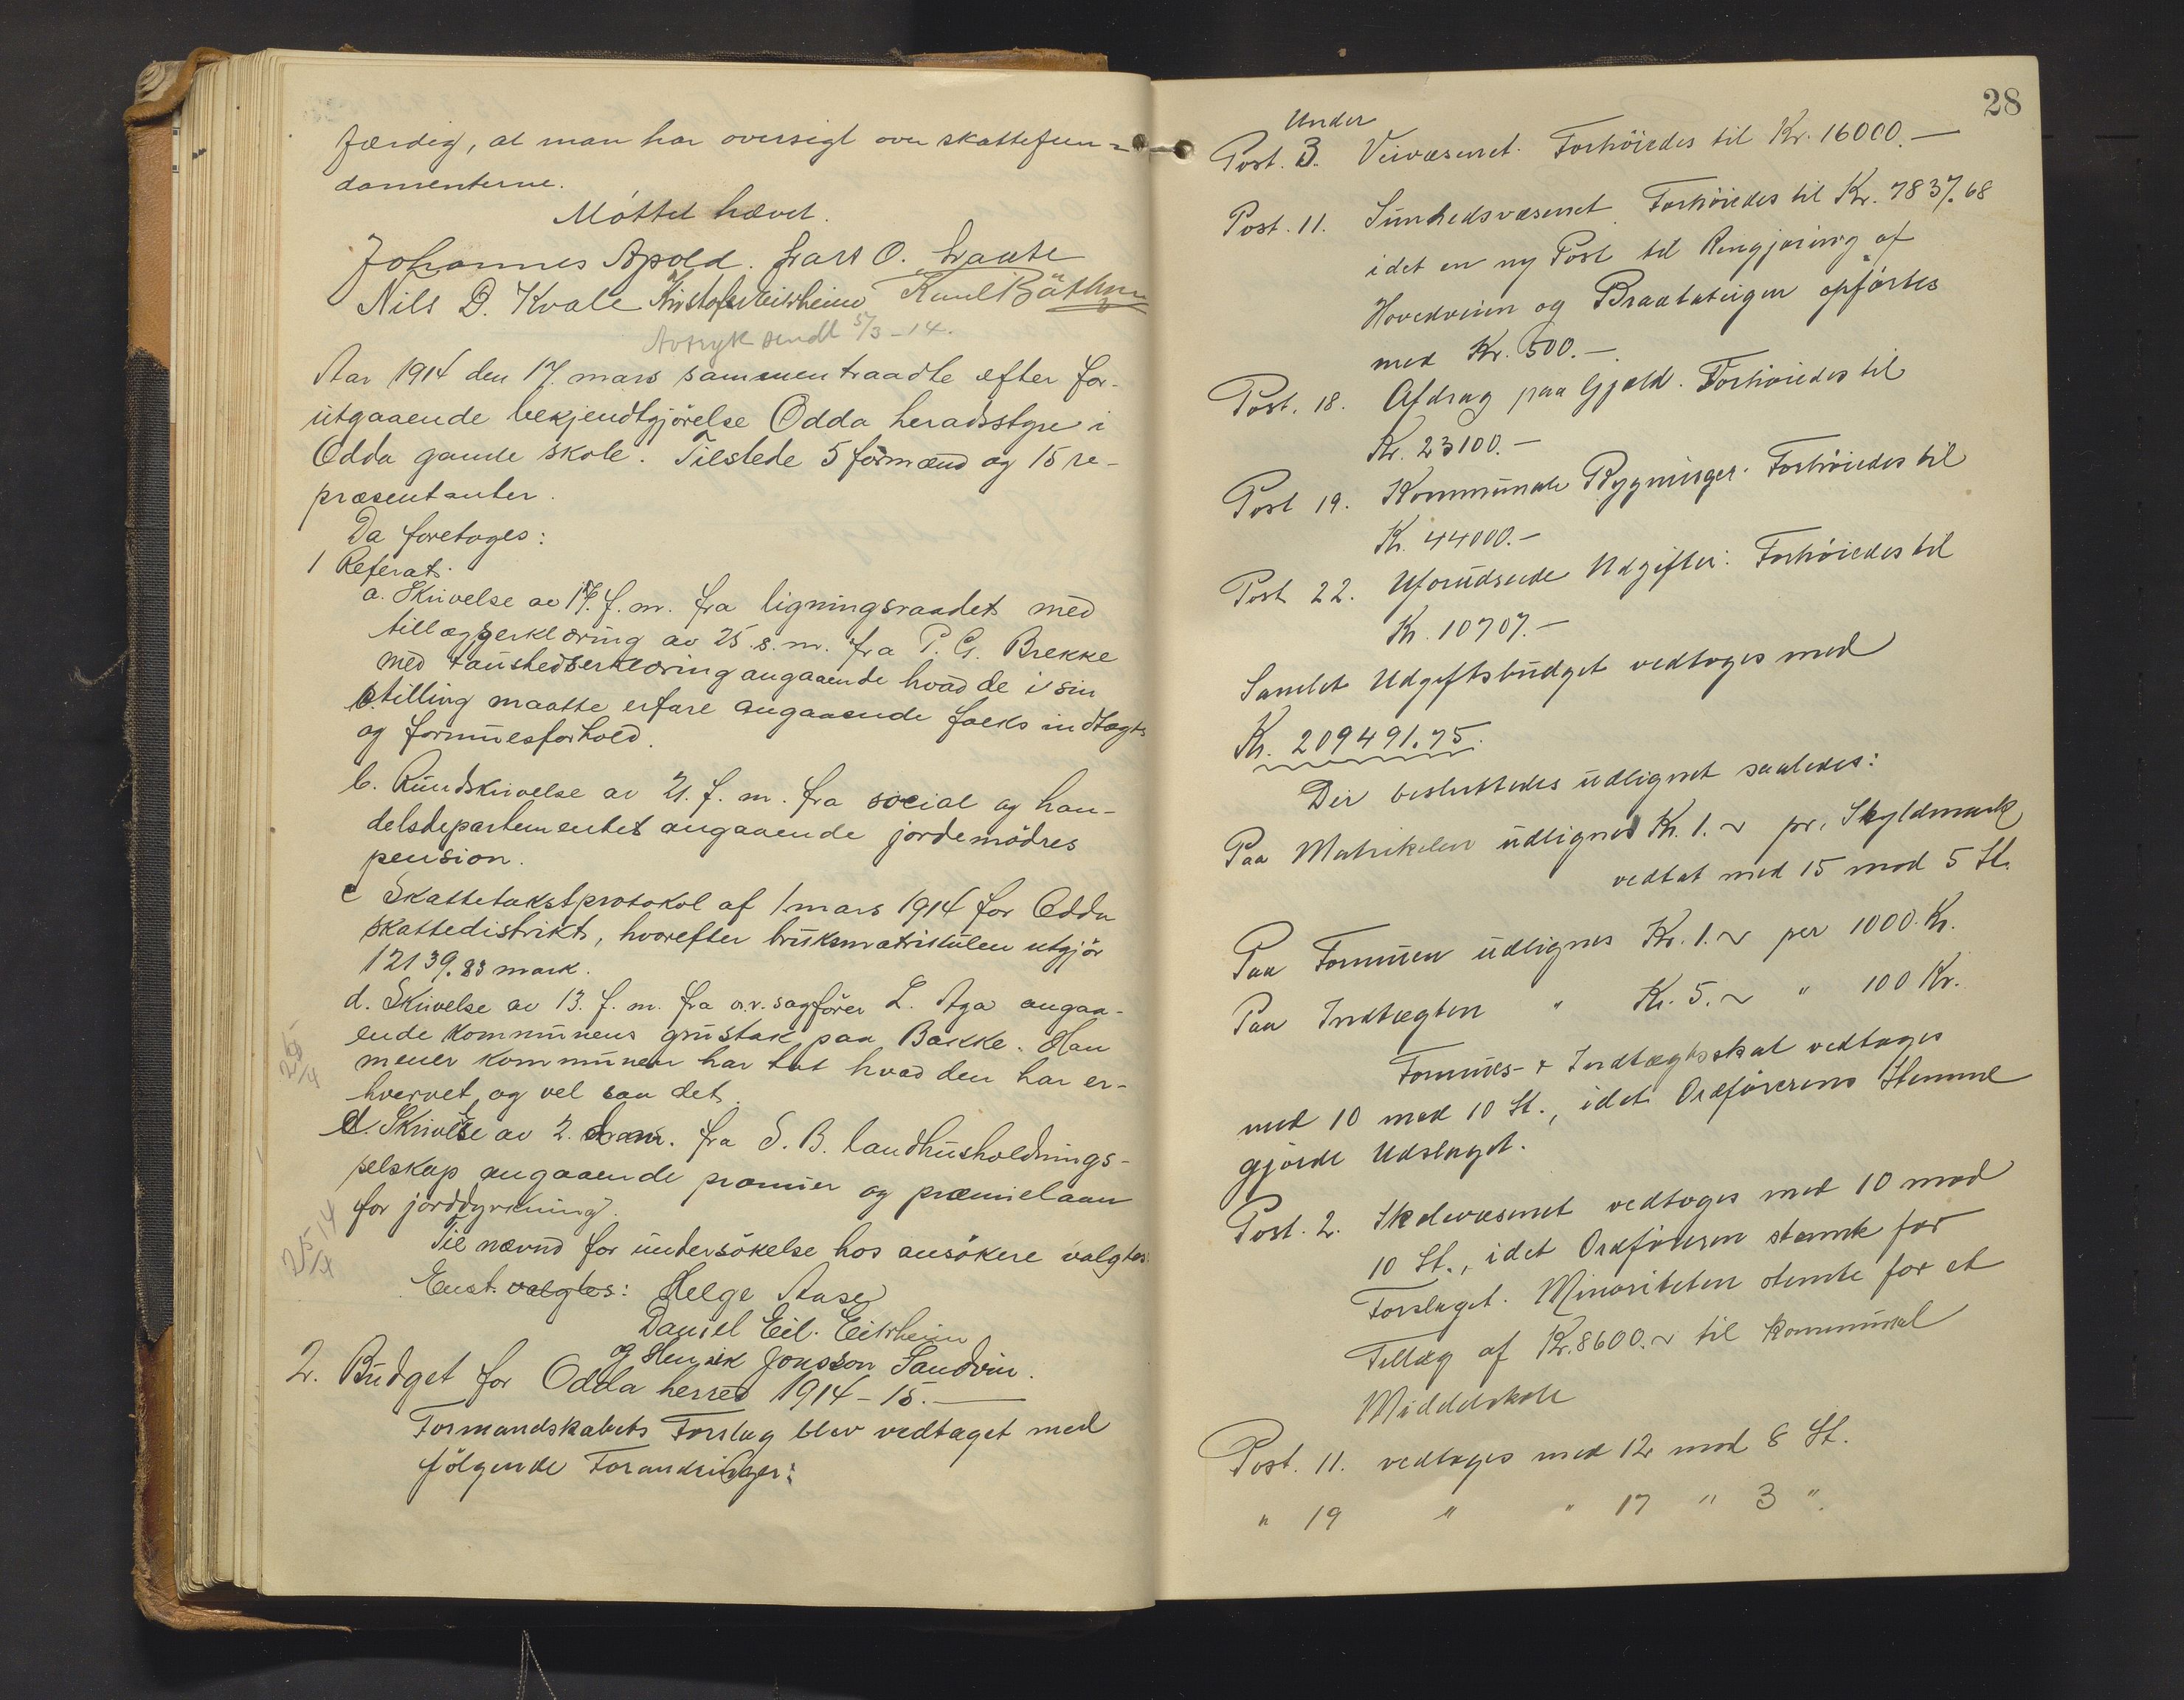 færdig, at man har oversigt over skattefun-
damenterne.
Möttet hævet.
Johannes Apold. Lars O. Laate
Nils D. Kvale Kristofer Eitrheim
Avtryk sendt 5/3-14.
Aar 1914 den 17. mars sammentraadte efter for-
utgaaende bekjendtgjörelse Odda heradsstyre i
Odda gamle skole. Tilstede 5 formænd og 15 re-
præsentanter.
Da foretoges:
1 Referat.
a. Skrivelse av 17. f. m. fra ligningsraadet med
tillægserklæring av 25. s. m. fra P. G. Brekke
med taushedserklæring angaaende hvad de i sin
stilling maatte erfare angaaende folks indtægts
og formuesforhold.
b. Rundskrivelse av 21. f. m. fra social og han-
delsdepartementet angaaende jordemödres
pension.
c Skattetakstprotokol af 1 mars 1914 for Odda
skattedistrikt, hvorefter bruksmatrikulen utgjör
12139.83 mark.
d. Skrivelse av 13. f. m. fra o.r.sagförer L. Aga angaa-
ende kommunens grustak paa Bakke. Han
mener kommunen har tat hvad den har er-
hvervet, og vel saa det.
d. Skrivelse av 2. fra S. B. landhusholdnings-
selskap angaaende præmier og præmielaan
for jorddyrkning.
Til nævnd for undersökelse hos ansökere valgtes:
Enst. valgtes: Helge Aase
Daniel Eil. Eitrheim
og Henrik Jonsson Sandvin.
2514
2. Budget for Odda herred 1914-15.
Formandskabets Forslag blev vedtaget med
fölgende Forandringer:
28
Under
Post. 3. Veivæsenet. Forhöiedes til Kr. 16000.-
Post. 11. Sundhedsvæsenet. Forhöiedes til Kr. 7837.68
idet en ny Post til Rengjöring af
Hovedveien og Braatateigen opförtes
med Kr. 500.-
Post. 18. Afdrag paa Gjæld. Forhöiedes til
Kr. 23100.-
Post 19. Kommunale Bygninger. Forhöiedes til
Kr. 44000.-
Post 22. Uforudseede Udgifter. Forhöiedes til
Kr. 10707.-
Samlet Udgiftsbudget vedtoges med
Kr. 209491.75.
Der besluttedes udlignet saaledes:
Paa Matrikelen udlignes Kr. 1.~ pr. Skyldmark
vedtat med 15 mod 5 St.
Paa Formuen udlignes Kr. 1.~ per 1000 Kr.
Paa Indtægten " Kr. 5.~ " 100 Kr.
Formues- & Indtægtsskat vedtoges
med 10 mod 10 St., idet Ordförerens Stemme
gjorde Udslaget.
Post. 2. Skolevæsenet vedtoges med 10 mod
10 St., idet Ordföreren stemte for
Forslaget. Minoriteten stemte for et
Tillæg af Kr. 8600.~ til kommunal
Middelskole
Post. 11. vedtoges med 12 mod 8 St.
" 19 " " 17 " 3 ".